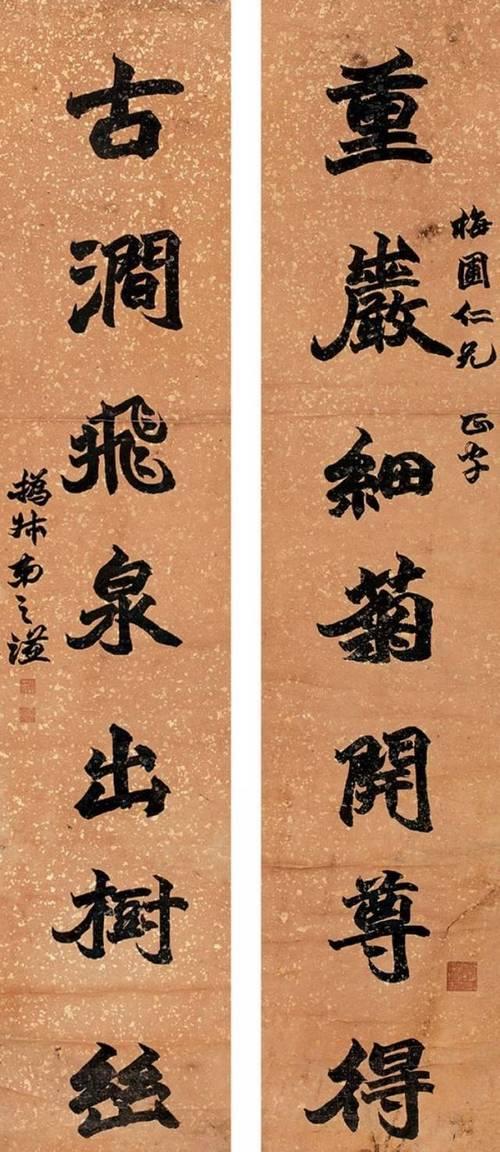 重巖細菊開尊得
梅圃仁兄 正字
古澗飛泉出樹
撝叔弟之謙